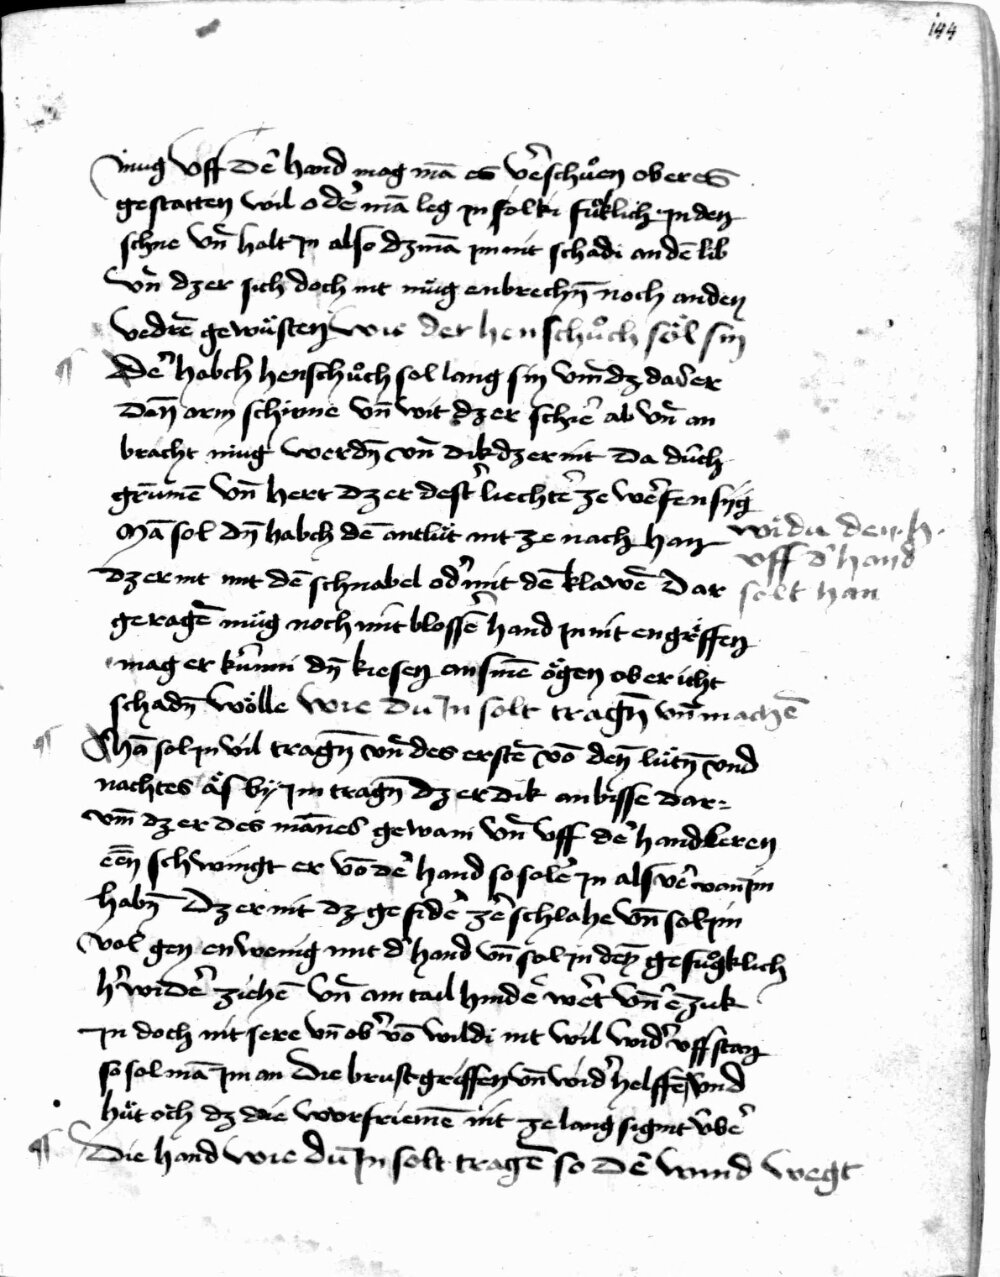 144
müg vff der hand mag mā es v̄schůen ob er es
gestatten wil oder mā leg in solki fůklich in den
schne vn̄ halt in also dz mā im nit schadi an dē lib
vn̄ dz er sich doch nit müg enbrechn̄ noch an den
vedrē gewüsten wie der henschůch söl sin
Der habch henschůch sol lang sin vm̄ dz da er
Den arm schirme vn̄ wit dz er schier ab vn̄ an
bracht müg werdn̄ vn̄ dik dz er nit da durch
grimē vn̄ hert dz er dest liechter ze werfen sig
Mā sol dn̄ habch dē antlüt nit ze nach han
wie du den h.
vff d' hand
solt han
dz er nit mit dē schnabel od' mit dē klawē dar
geragē müg noch mit blossē hand in nit engriffen
mag er kum̄i dn̄ kiesen an sinē ögen ob er icht
schadn̄ wölle wie du In solt tragn̄ vn̄ machē
Mā sol in vil tragn̄ vn̄ des erstē vō den lütn̄ vnd
nachtes äs by im tragn̄ dz er dik anbisse dar=
vm̄ dz er des mānes gewani vn̄ vff der hand leren
schwingt er vō der hand so sol er in
habn̄ dz er nit dz gefider zerschlahe vn̄ sol im
volgen en wenig mit d' hand vn̄ sol in den gefůgklich
h'wider ziehē vn̄ am tail hinder wert vn̄ zuk
in doch nit sere vn̄ ob er vō wildi nit wil wid' vff stan
so sol mā im an die brust griffen vn̄ wid' helffen vnd
hüt och dz die worfriemē nit ze lang sigint über
Die hand wie du In solt tragē so der wind wegt